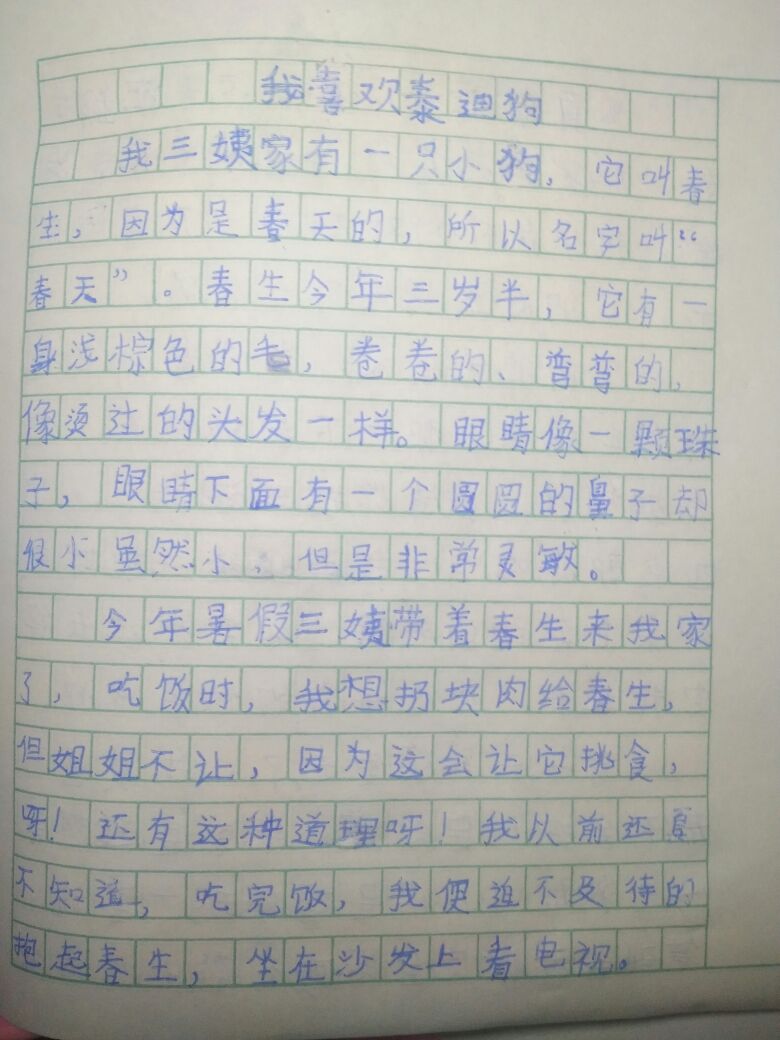 我喜欢泰迪狗
我三姨家有一只小狗，它叫春
生，因为是春天的，所以名字叫“
春天”。春生今年三岁半，它有一
身浅棕色的毛，卷卷的、弯弯的，
像烫过的头发一样。眼睛像一颗珠
子，眼睛下面有一个圆圆的鼻子却
很小虽然小，但是非常灵敏。
今年暑假三姨带着春生来我家
了，吃饭时，我想扔块肉给春生，
但姐姐不让，因为这会让它挑食，
呀！还有这种道理呀！我以前还真
不知道，吃完饭，我便迫不及待的
抱起春生，坐在沙发上看电视。